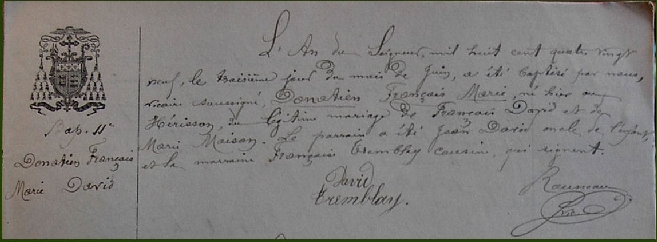 L'An du Seigneur, mil huit cent quatre vingt
neuf, le treisième jour du mois de Juin, a été baptisé par nous,
vicaire soussigné, Donatien François Marie, né hier au
Hérisson, du légitime mariage de François David et de
Marie Maison. Le parrain a été Jean David oncle de l'enfant,
et la marraine François Tremblay cousine, qui signent.
Bap. 11e
Donatien François
Marie David
David
Tremblay.